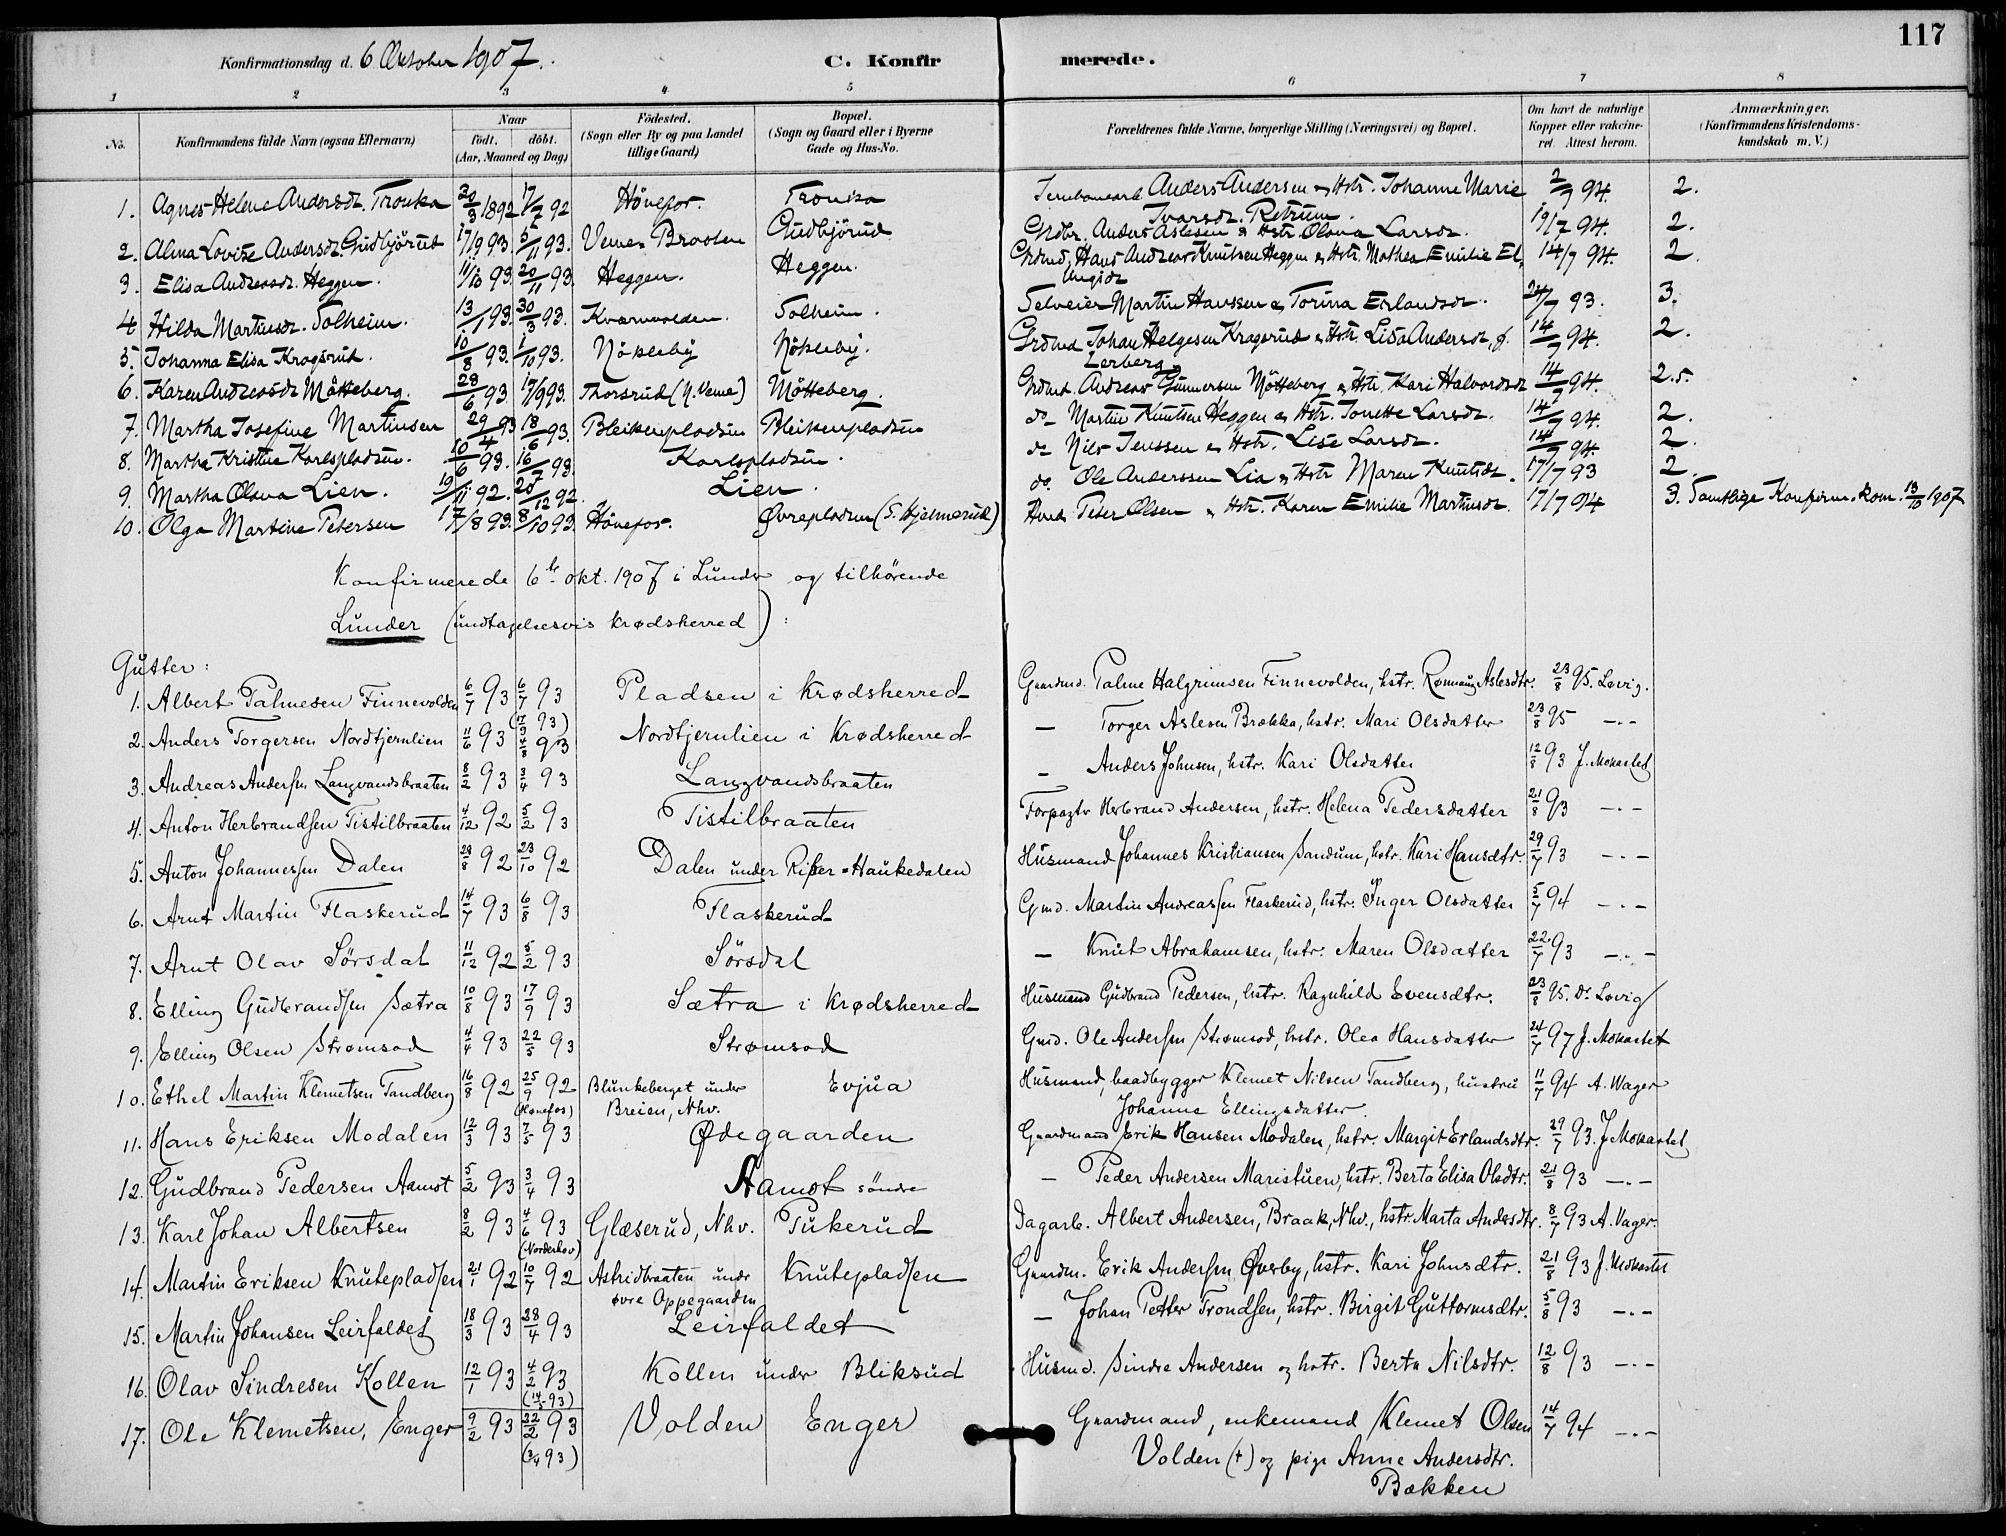 117
Konfirmationsdag d. 6 Oktober 1907.
C. Konfirmerede.
1 2 3 4 5 6 7 8
No. Konfirmandens fulde Navn (ogsaa Efternavn) Naar födt. döbt. (Aar, Maaned og Dag) Födested. (Sogn eller By og paa Landet tillige Gaard) Bopæl. (Sogn og Gaard eller i Byerne Gade og Hus-No. Forældrenes fulde Navne, borgerlige Stilling (Næringsvei) og Bopæl. Om havt de naturlige Kopper eller vakcineret. Attest herom. Anmærkninger. (Konfirmandens Kristendomskundskab m. V.)
1. Agnes Helene Andersdr. Tronka 20/3 1892 17/7 92 Hönefos. Tronka Anders Andersen & Hstr. Johanne Marie Ivarsdr. Retrum. 2/9 94. 2.
2. Alma Lovise Andersdr. Gudbjörud 17/9 93 5/11 93. Veme Braaten Gudbjörud Grdbr. Anders Aslesen & Hstr. Olava Larsdr. 19/7 94. 2.
3. Elisa Andreasdr. Heggen. 11/10 93. 20/11 93. Heggen. Heggen. Grdmd. Hans Andreas Knutsen Heggen & Hstr. Mathea Emilie El. 14/7 94. 2
4. Hilda Martinsdr. Solheim. 13/1 93. 30/3 93. Kvarnvolden. Solheim. Selveier Martin Hanssen & Torina Erlandsdr. 24/7 93. 3.
5. Johanna Elisa Kragsrud. 10/8 93. 1/10 93. Nökleby Nökleby. Grdmd Johan Helgesen Kragsrud & Hstr Lisa Andersdr, f. Lerberg 14/7 94. 2.
6. Karen Andreasdr Mötteberg. 28/6 93 17/9 93. Thorsrud (N. Veme) Mötteberg. Grdmd. Andreas Gunnersen Mötteberg & Hstr. Kari Halvorsdr 14/7 94. 2.5.
7. Martha Josefine Martinsen 29/4 93 18/6 93. Bleikenpladsen Bleikenpladsen do Martin Knutsen Heggen & Hstr. Jonette Larsdr. 14/7 94. 2.
8. Martha Kristine Karlspladsen. 10/6 93. 16/7 93. Karlspladsen. do Nils Jenssen & Hstr. Lise Larsdr. 14/7 94. 2.
9. Martha Olava Lien. 19/11 92. 26/12 92. Lien. do. Ole Anderssen Lia & Hstr Maren Knutsdr. 17/7 93 2.
10. Olga Martine Petersen 17/8 93. 8/10 93. Hönefos. Øvrepladsen (S. Hjelmerud) Peter Olsen & Hstr. Karen Emilie Martinsdr. 17/7 94 3. Samtlige Konfirm. kom. 13/10 1907
Konfirmerede 6te okt. 1907 i Lunder og tilhørende
Lunder (undtagelsesvis krødsherred):
Gutter:
1. Albert Palmesen Finnevolden 6/7 93 6/7 93 Pladsen i Krødsherred Gaardmd. Palme Halgrimsen Finnevolden, hstr. Rønnaug Aslesdtr. 23/8 95. Løvig.
2. Anders Torgersen Nordtjernlien 11/6 93 (17/3 93) 4/8 93 Nordtjernlien i Krødsherred — Torger Aslesen Brækka, hstr. Mari Olsdatter 23/8 95 —.—
3. Andreas Andersen Langvandsbraaten 8/2 93 3/4 93 Langvandsbraaten — Anders Johnsen, hstr. Kari Olsdatter 12/8 93 J. Mokastet
4. Anton Herbrandsen Tistilbraaten 4/12 92 5/2 93 Tistilbraaten Forpagtr Herbrand Andersen, hstr. Helena Pedersdatter 21/8 93 —.—
5. Anton Johannessen Dalen 28/8 92 23/10 92 Dalen under Haukedalen Husmand Johannes Kristiansen Sandum, hstr. Kari Hansdtr. 29/7 93 —.—
6. Arnt Martin Flaskerud 14/7 93 6/8 93 Flaskerud Gmd. Martin Andreassen Flaskerud, hstr. Inger Olsdatter 5/7 94 —.—
7. Arnt Olav Sörsdal 11/12 92 5/2 93 Sörsdal — Knut Abrahamsen, hstr. Maren Olsdatter 22/7 93 —.—
8. Elling Gudbrandsen Sætra 10/8 93 17/9 93 Sætra i Krødsherred Husmand Gudbrand Pedersen, hstr. Ragnhild Evensdtr. 23/8 95. Dr Løvig
9. Elling Olsen Strømsod 4/4 93 22/5 93 Strømsod Gmd. Ole Andersen Strømsod, hstr. Olea Hansdatter 24/7 97 J. Mokastet
10. Ethel Martin Klemetsen Tandberg 16/8 92 25/9 92 (Hønefos) Blunkeberget under Breien, Nhv. Evjua Husmand, baadbygger Klemet Nilsen Tandberg, hustru Johanne Ellingsdatter. 11/7 94 A. Wager
11. Hans Eriksen Modalen 12/3 93 7/5 93 Ødegaarden Gaardmand Erik Hansen Modalen, hstr. Margit Erlandsdtr. 29/7 93. J. Mokastet
12. Gudbrand Pedersen Aamot 5/2 93 3/4 93 Aamot söndre — Peder Andersen Maristuen, hstr. Berta Elisa Olsdtr. 21/8 93 —.—
13. Karl Johan Albertsen 8/2 93 4/6 93 (Norderhov) Glæserud, Nhv. Tukerud Dagarb. Albert Andersen, Braak, Nhv., hstr. Marta Andrsdtr. 8/7 93 A. Vager.
14. Martin Eriksen Knutepladsen 21/1 92 10/7 92 Astridbraaten undr øvre Oppegaarden Knutepladsen Gaardm. Erik Andersen Øverby, hstr. Kari Johnsdtr. 21/8 93 J. Mokastet
15. Martin Johansen Leirfaldet 18/3 93 28/4 93 Leirfaldet — Johan Petter Trondsen, hstr. Birgit Guttormsdtr. 5/8 93 —.—
16. Olav Sindresen Kollen 12/1 93 4/2 93 (14/5 93) Kollen under Bliksud Husmd. Sindre Andersen og hstr. Berta Nilsdtr. 12/8 93 —.—
17. Ole Klemetsen, Enger 9/2 93 22/2 93 (3/4 93) Volden Enger Gaardmand, enkemand Klemet Olsen Volden (+) og pige Anne Andersdtr. Bækken 14/7 94 —.—